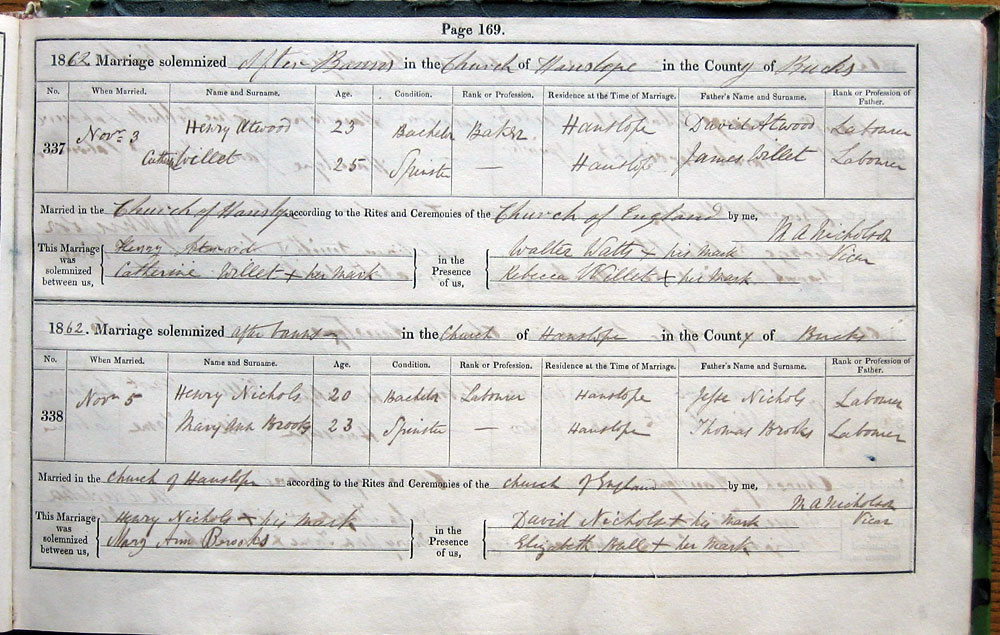 Page 169.
1862 Marriage solemnized After Banns in the Church of Hanslope in the County of Bucks
No. When Married. Name and Surname. Age. Condition. Rank or Profession. Residence at the Time of Marriage. Father's Name and Surname. Rank or Profession of Father.
337 Novr 3 Henry Atwood 23 Bachelr Baker Hanslope David Atwood Labourer
Catherine Willet 25 Spinster — Hanslope James Willet Labourer
Married in the Church of Hanslope according to the Rites and Ceremonies of the Church of England by me,
M A Nicholson
Vicar
This Marriage was solemnized between us,
Henry Atwood
Catherine Willet + her mark
in the Presence of us,
Walter Watts + his mark
Rebecca Willet + his mark
1862. Marriage solemnized after banns in the Church of Hanslope in the County of Bucks
No. When Married. Name and Surname. Age. Condition. Rank or Profession. Residence at the Time of Marriage. Father's Name and Surname. Rank or Profession of Father.
338 Novr 5 Henry Nichols 20 Bachelr Labourer Hanslope Jesse Nichols Labourer
Mary Ann Brooks 23 Spinster — Hanslope Thomas Brooks Labourer
Married in the Church of Hanslope according to the Rites and Ceremonies of the church of England by me,
M A Nicholson
Vicar
This Marriage was solemnized between us,
Henry Nichols + his mark
Mary Ann Brooks
in the Presence of us,
David Nichols + his mark
Elizabeth Hall + her mark